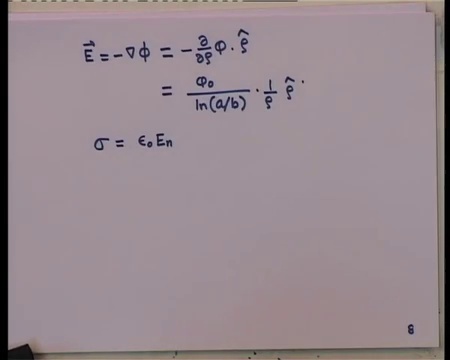 E⃗ = -∇ϕ = -∂/∂ρ φ · ρ̂
= φ₀/ln(a/b) · 1/ρ ρ̂ ·
σ = ε₀En
8